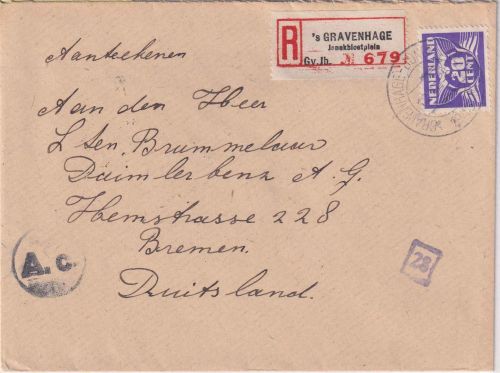 Aanteekenen
R
's GRAVENHAGE
Jonckbloetplein
Gv. Jb. № 679
NEDERLAND
20
CENT
Aan den Heer
L Sen. Brummelaar
Daimlerbenz A. G.
Hemstrasse 228
Bremen.
Duitsland.
A. c.
28